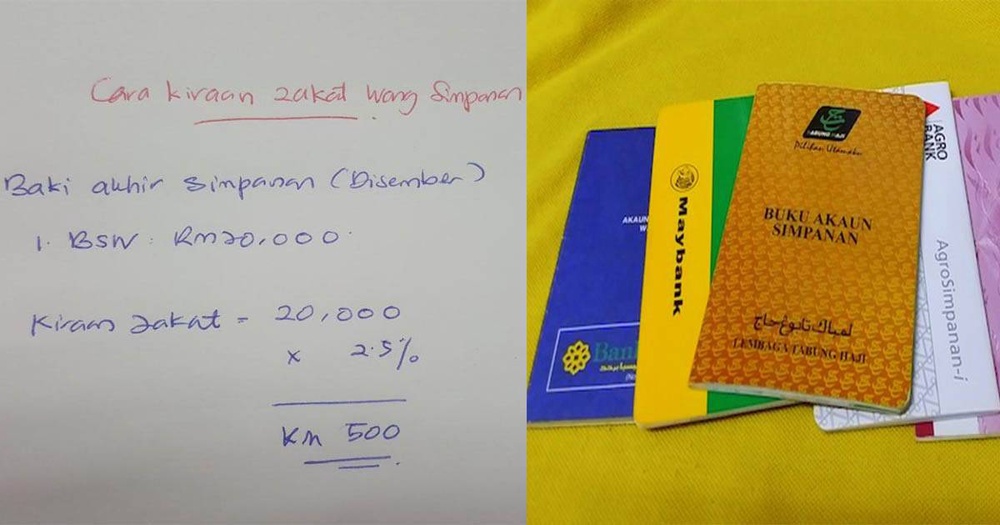 Cara kiraan zakat Wang Simpanan
Baki akhir simpanan (Disember)
1. BSN: RM20,000
Kiraan zakat = 20,000
x 2.5%
RM 500
AKAUN
W
Bank
Maybank
TABUNG HAJI
Pilihan Utamaku
BUKU AKAUN
SIMPANAN
لمباݢ تابوڠ حاج
LEMBAGA TABUNG HAJI
AGRO
BANK
AgroSimpanan-i